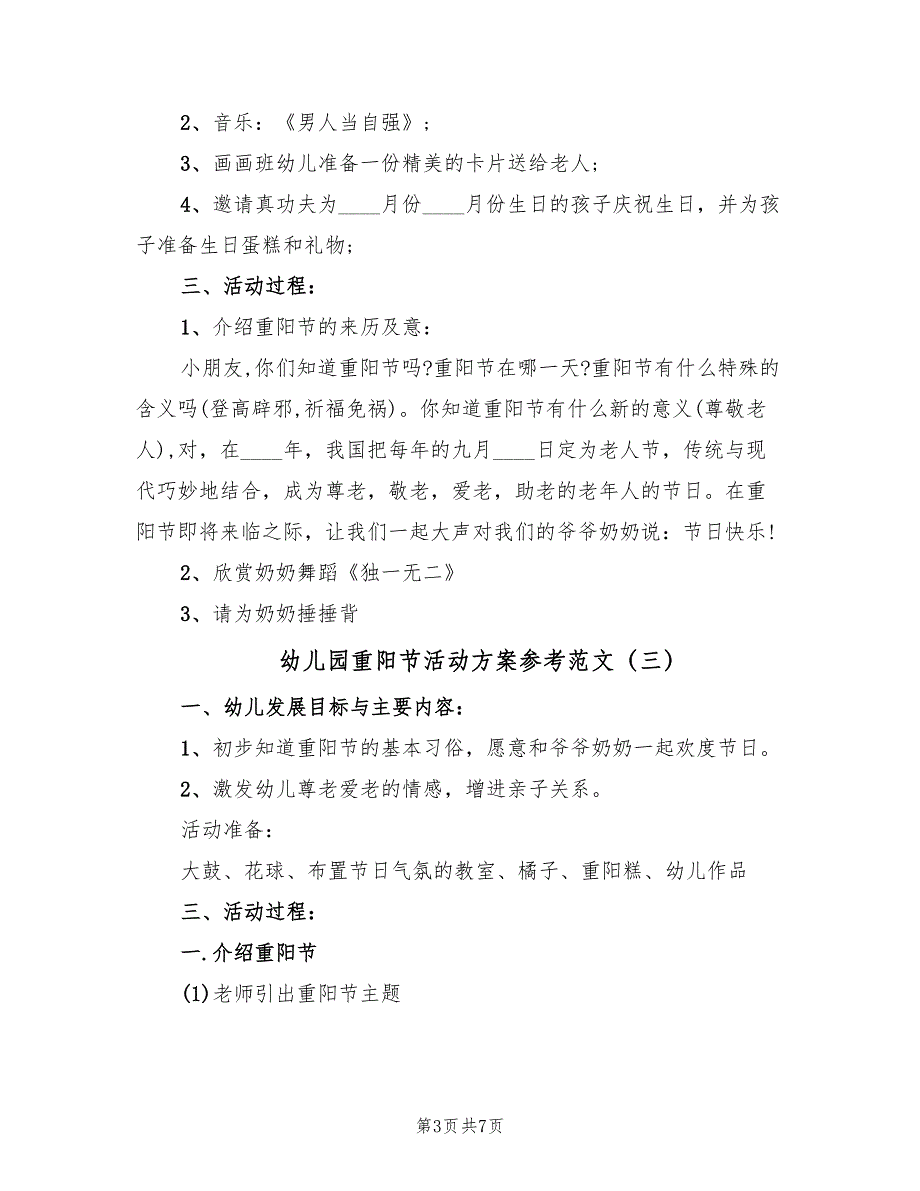 2、音乐：《男人当自强》;
3、画画班幼儿准备一份精美的卡片送给老人;
4、邀请真功夫为____月份____月份生日的孩子庆祝生日，并为孩
子准备生日蛋糕和礼物;
三、活动过程：
1、介绍重阳节的来历及意：
小朋友,你们知道重阳节吗?重阳节在哪一天?重阳节有什么特殊的
含义吗(登高辟邪,祈福免祸)。你知道重阳节有什么新的意义(尊敬老
人),对，在____年，我国把每年的九月____日定为老人节，传统与现
代巧妙地结合，成为尊老，敬老，爱老，助老的老年人的节日。在重
阳节即将来临之际，让我们一起大声对我们的爷爷奶奶说：节日快乐!
2、欣赏奶奶舞蹈《独一无二》
3、请为奶奶捶捶背
幼儿园重阳节活动方案参考范文（三）
一、幼儿发展目标与主要内容：
1、初步知道重阳节的基本习俗，愿意和爷爷奶奶一起欢度节日。
2、激发幼儿尊老爱老的情感，增进亲子关系。
活动准备：
大鼓、花球、布置节日气氛的教室、橘子、重阳糕、幼儿作品
三、活动过程：
一.介绍重阳节
(1)老师引出重阳节主题
第3页 共7页